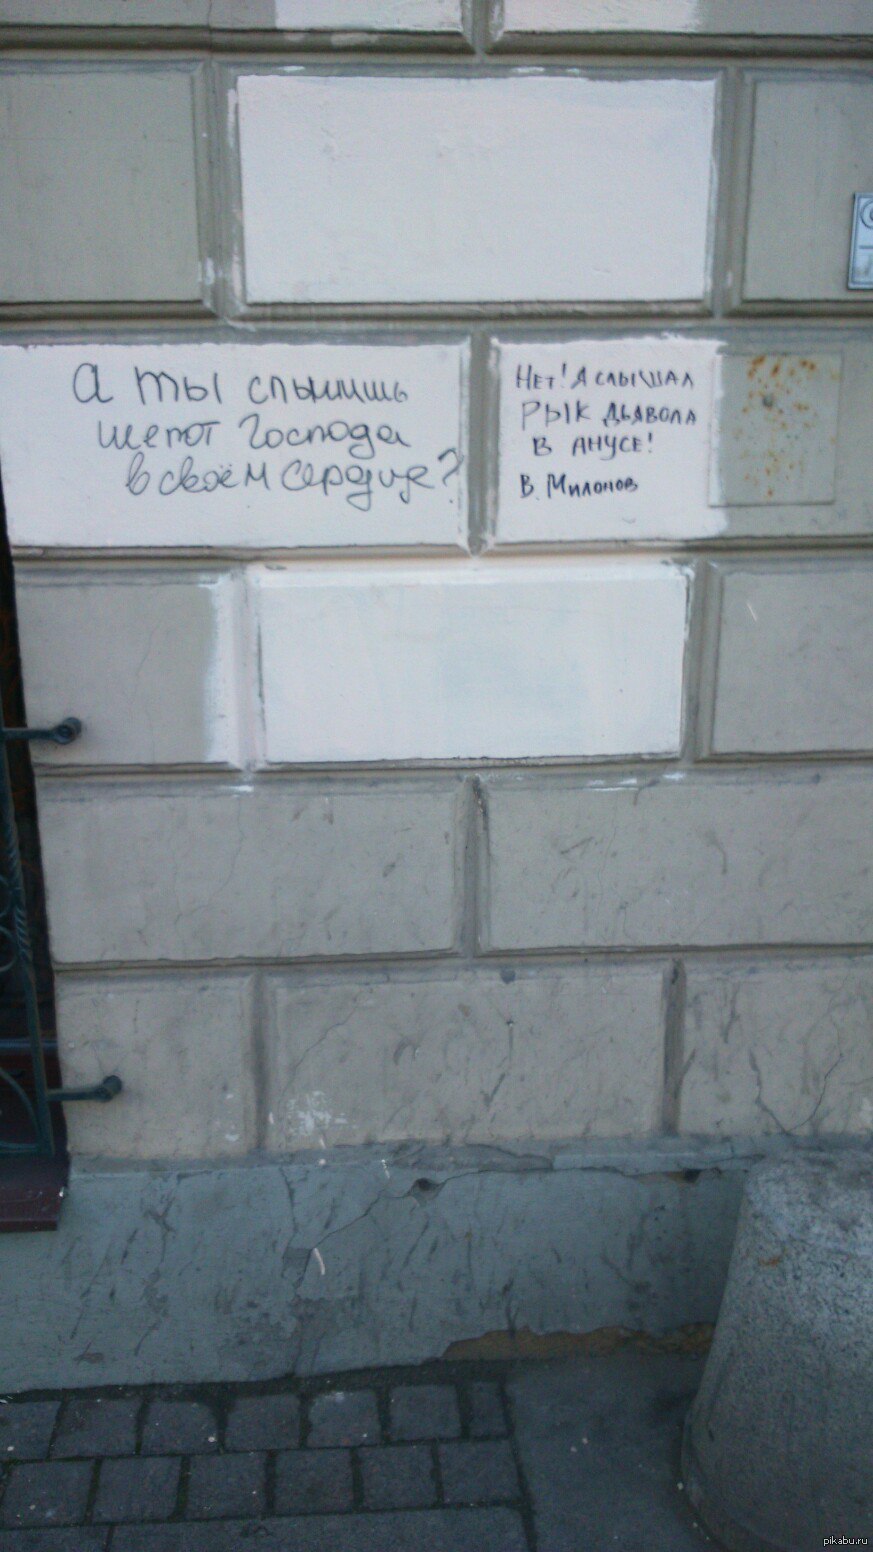 а ты слышишь
шепот Господа
в своём сердце?
Нет! Я слышал
рык дьявола
в анусе!
В. Милонов
pikabu.ru